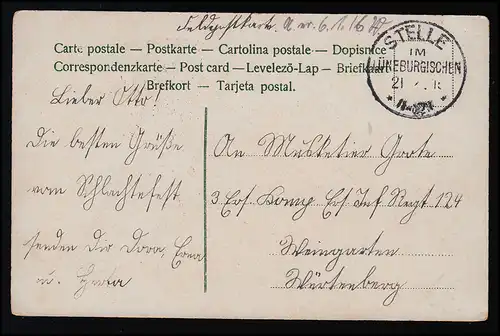 Feldpostkarte
Carte postale — Postkarte — Cartolina postale — Dopisnice
Correspondenzkarte — Post card — Levelezö-Lap — Briefkaart
Brefkort — Tarjeta postal.
STELLE
IM
LÜNEBURGISCHEN
Lieber Otto!
Die besten Grüße
vom Schlachtefest
senden Dir Dora, Erna
u. Herta
An Musketier Grote
3 Ers. Komp Ers Inf Regt 124
Weingarten
Würtenberg